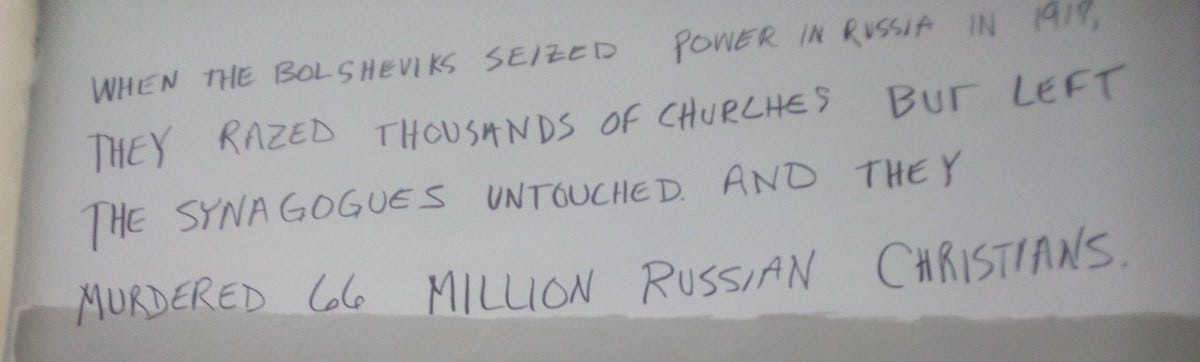 WHEN THE BOLSHEVIKS SEIZED POWER IN RUSSIA IN 1918,
THEY RAZED THOUSANDS OF CHURCHES BUT LEFT
THE SYNAGOGUES UNTOUCHED. AND THEY
MURDERED 66 MILLION RUSSIAN CHRISTIANS.